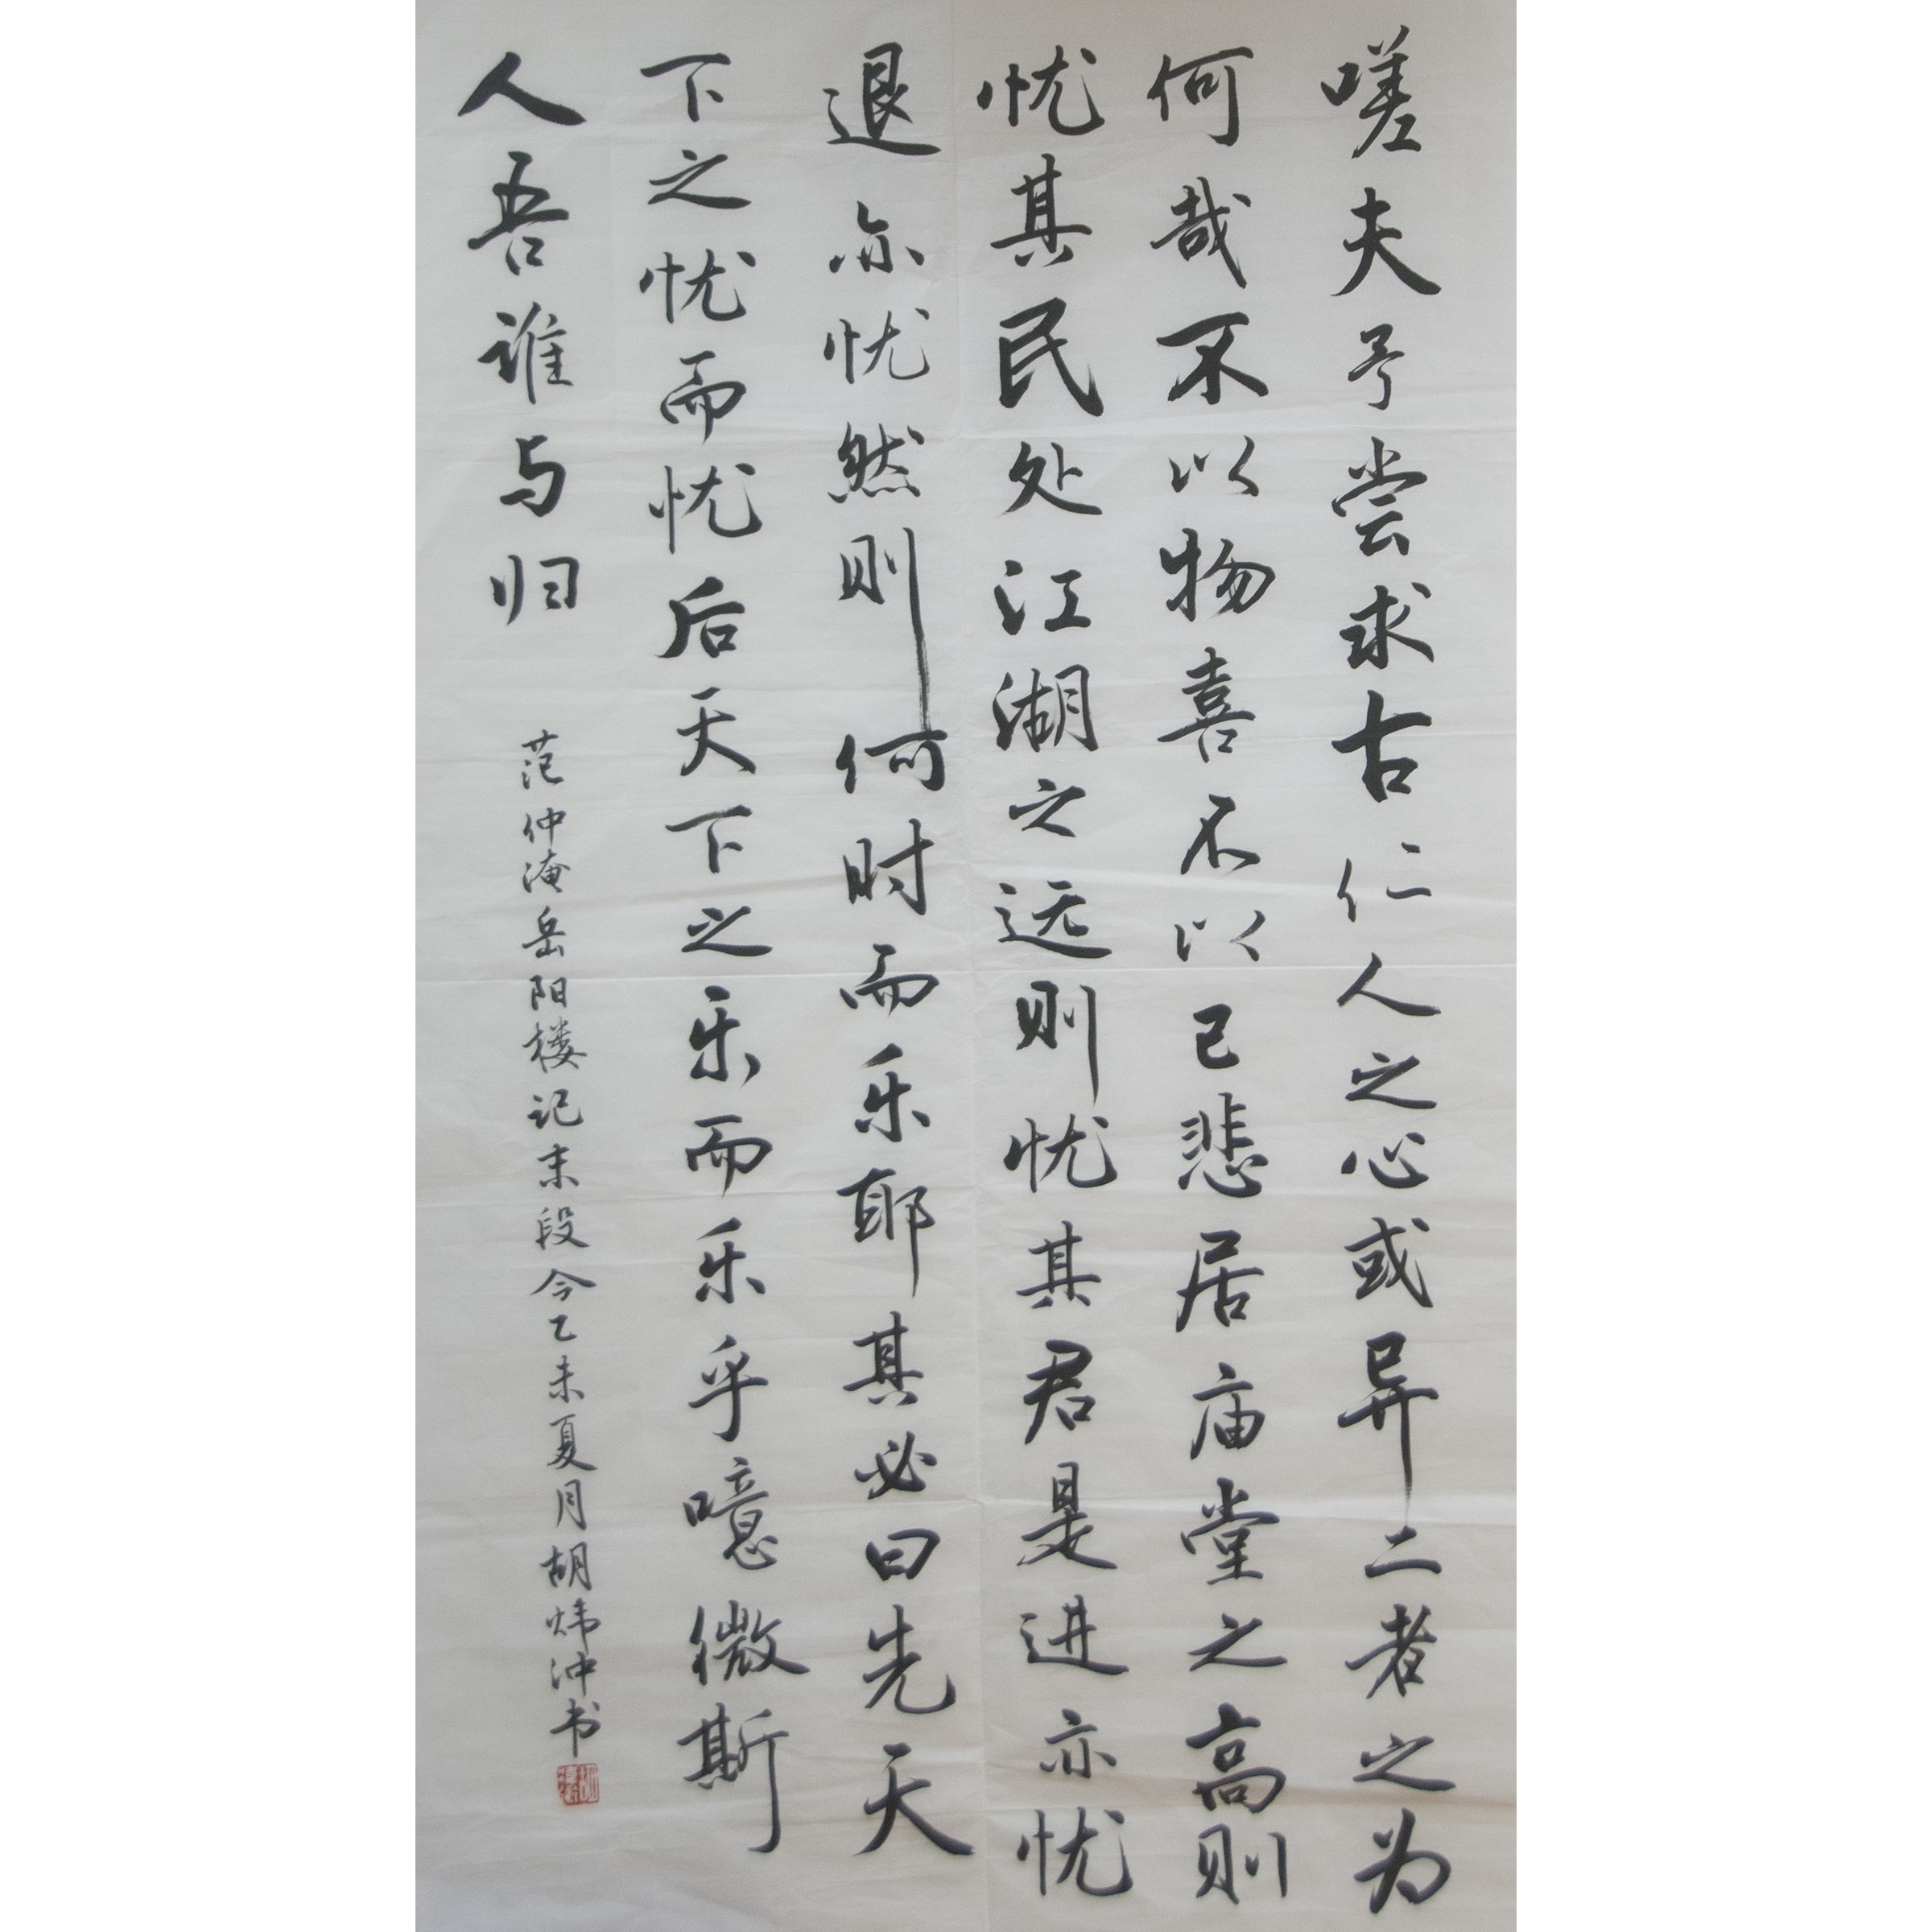 嗟夫予尝求古仁人之心或异二者之为
何哉不以物喜不以己悲居庙堂之高则
忧其民处江湖之远则忧其君是进亦忧
退亦忧然则何时而乐耶其必曰先天
下之忧而忧后天下之乐而乐乎噫微斯
人吾谁与归
范仲淹岳阳楼记末段今乙未夏月胡炜冲书